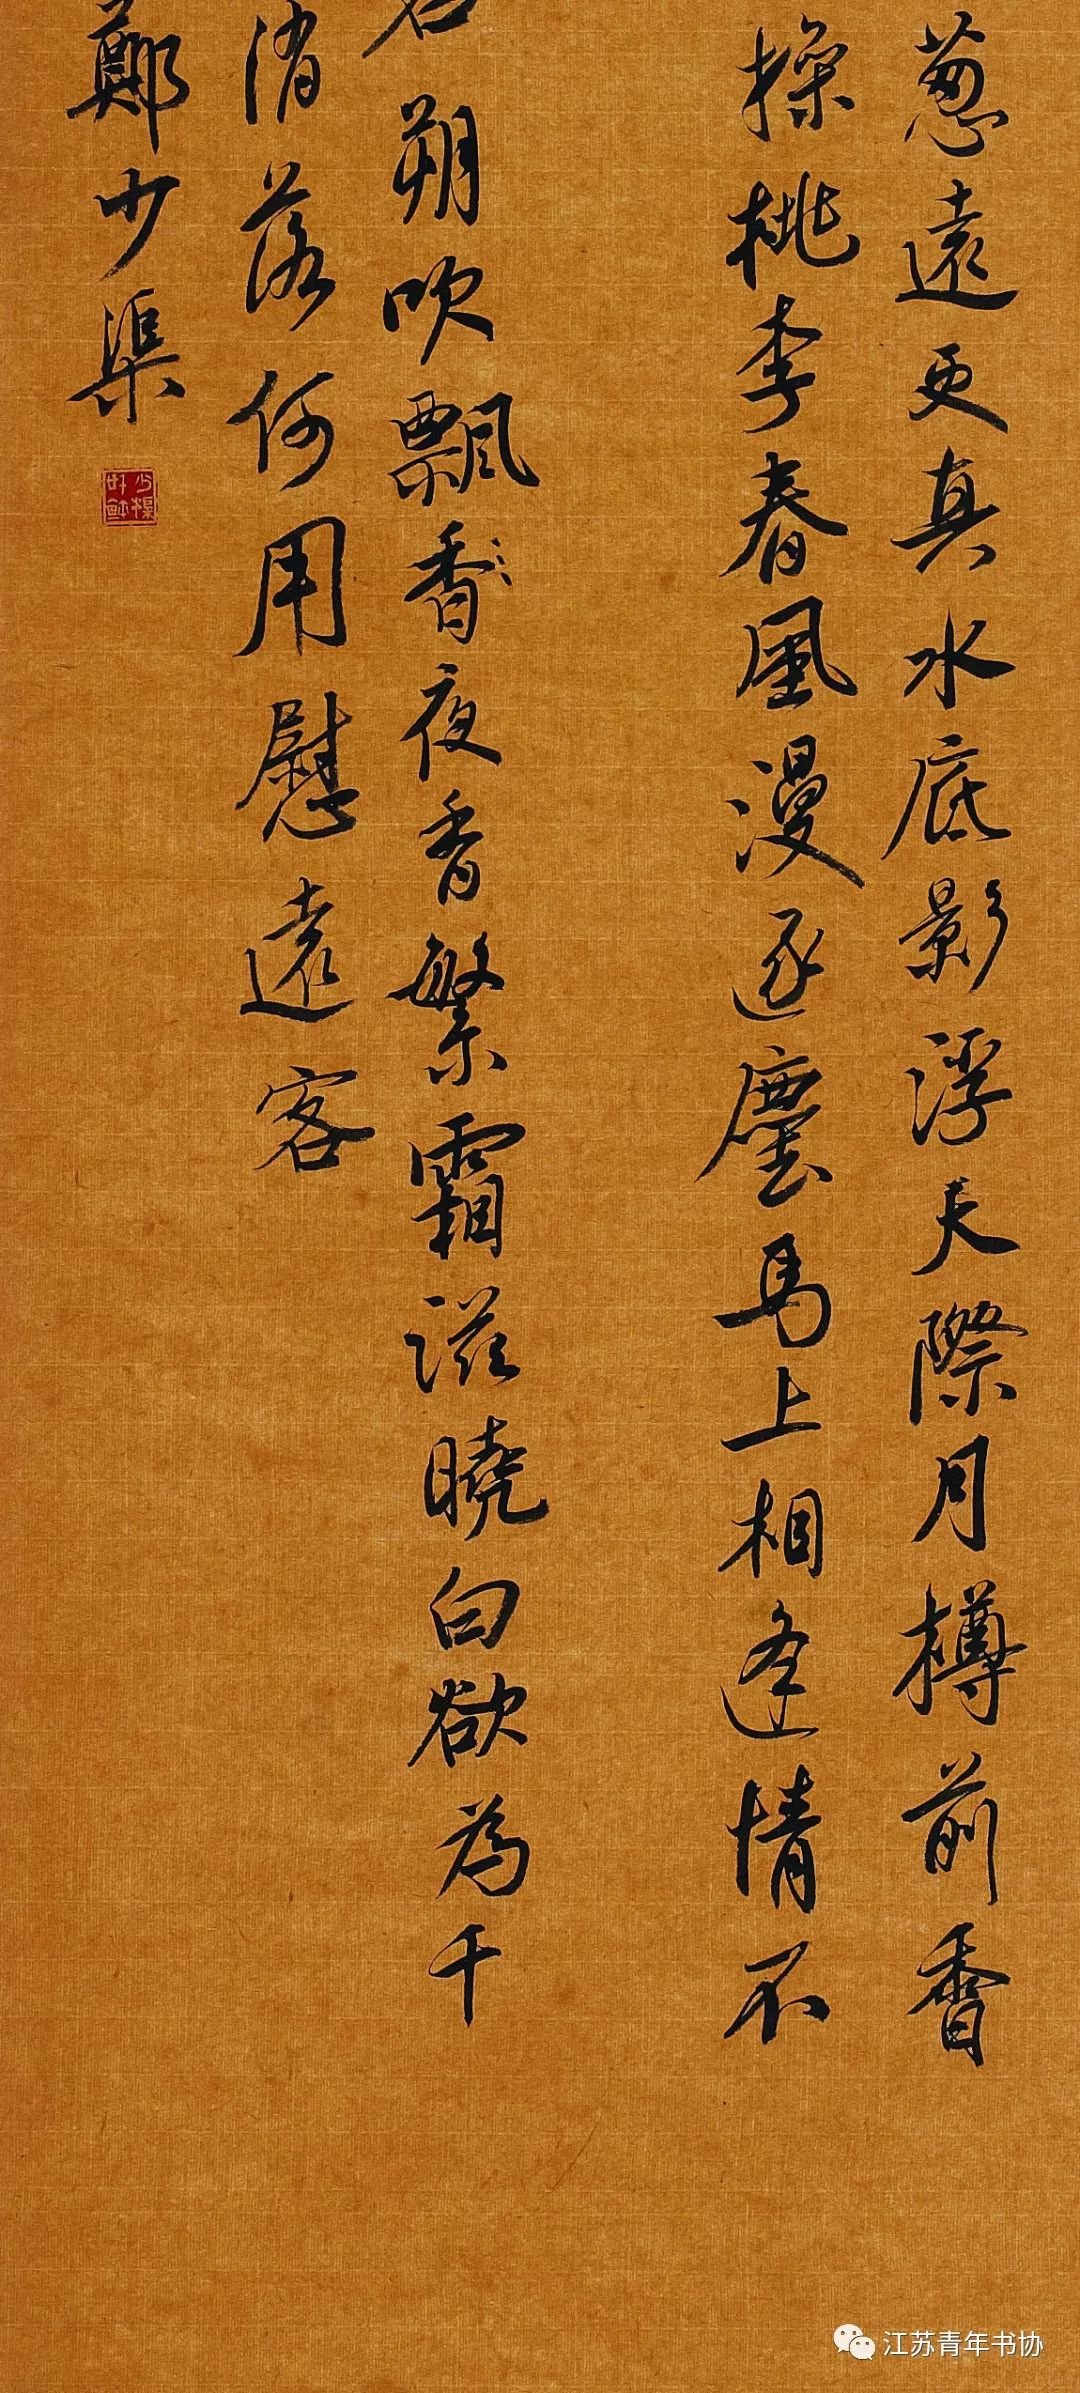 葱遠更真水底影浮天際月樽前香
操桃李春風漫逐塵馬上相逢情不
朔吹飄香夜香繁霜滋曉白欲為千
消落何用慰遠客
鄭少渠
江苏青年书协